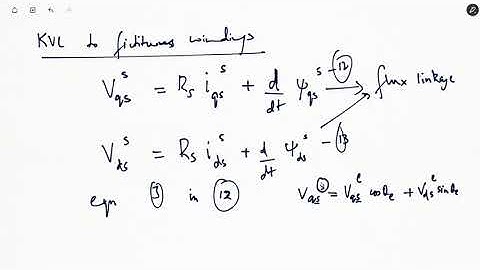 KVL to fictitious windings
V_qs^s = R_s i_qs^s + d/dt ψ_qs^s – (12) flux linkage
V_ds^s = R_s i_ds^s + d/dt ψ_ds^s – (13)
eqn (3) in (12) V_qs^s = V_qs^e cosθ_e + V_ds^e sinθ_e